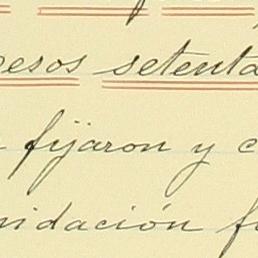 pesos setenta
fijaron y c
nidación f